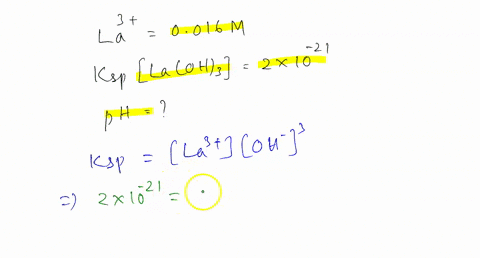 La³⁺ = 0.016 M
Ksp [La(OH)₃] = 2×10⁻²¹
pH = ?
Ksp = [La³⁺][OH⁻]³
⇒ 2×10⁻²¹ =